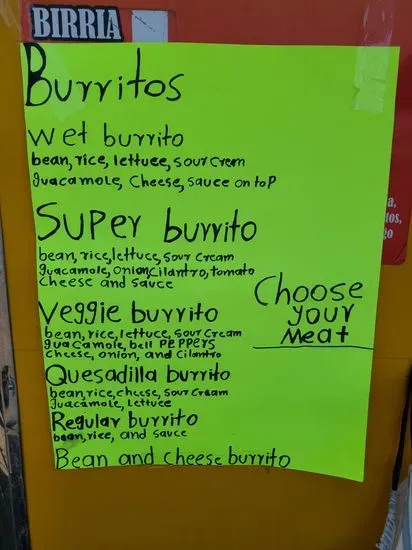 BIRRIA
Burritos
Wet burrito
bean, rice, lettuce, sour crem
guacamole, cheese, sauce on toP
Super burrito
bean, rice, lettuce, sour cream
guacamole, onion, cilantro, tomato
cheese and sauce
Choose
your
Meat
Veggie burrito
bean, rice, lettuce, sour cream
guacamole, bell PEPPERS
cheese, onion, and cilantro
Quesadilla burrito
bean, rice, cheese, sour cream
guacamole, lettuce
Regular burrito
bean, rice, and sauce
Bean and cheese burrito